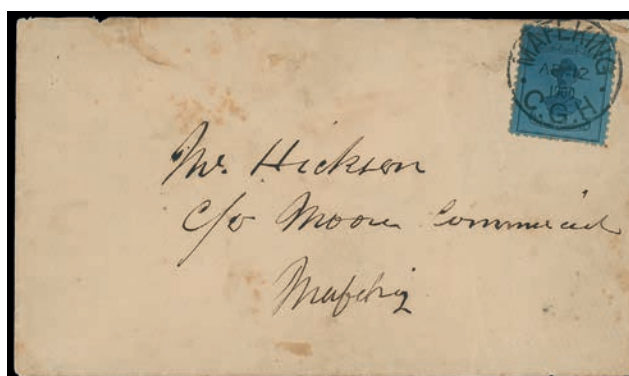 MAFEKING
AP 12
1900
C.G.H.
Mr. Hickson
c/o Moore Commercial
Mafeking